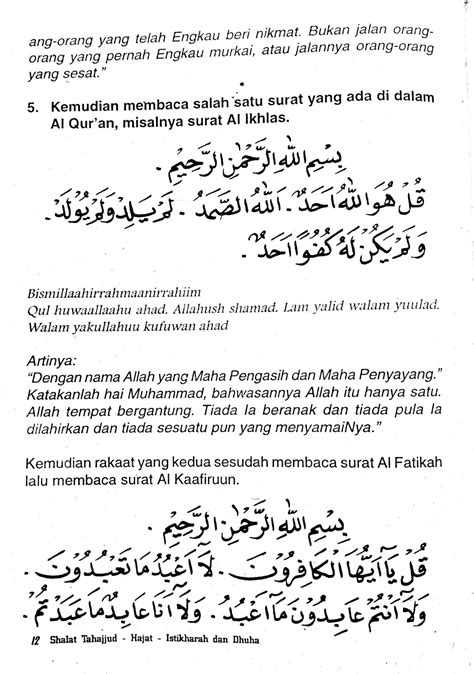 ang-orang yang telah Engkau beri nikmat. Bukan jalan orang-
orang yang pernah Engkau murkai, atau jalannya orang-orang
yang sesat.”
5. Kemudian membaca salah satu surat yang ada di dalam
Al Qur’an, misalnya surat Al Ikhlas.
بِسْمِ اللهِ الرَّحْمٰنِ الرَّحِيْمِ .
قُلْ هُوَ اللهُ اَحَدٌ . اَللهُ الصَّمَدُ . لَمْ يَلِدْ وَلَمْ يُوْلَدْ .
وَلَمْ يَكُنْ لَهُ كُفُوًا اَحَدٌ .
Bismillaahirrahmaanirrahiim
Qul huwaallaahu ahad. Allahush shamad. Lam yalid walam yuulad.
Walam yakullahuu kufuwan ahad
Artinya:
“Dengan nama Allah yang Maha Pengasih dan Maha Penyayang.”
Katakanlah hai Muhammad, bahwasannya Allah itu hanya satu.
Allah tempat bergantung. Tiada Ia beranak dan tiada pula Ia
dilahirkan dan tiada sesuatu pun yang menyamaiNya.”
Kemudian rakaat yang kedua sesudah membaca surat Al Fatikah
lalu membaca surat Al Kaafiruun.
بِسْمِ اللهِ الرَّحْمٰنِ الرَّحِيْمِ .
قُلْ يَآاَيُّهَا الْكَافِرُوْنَ . لَآ اَعْبُدُ مَا تَعْبُدُوْنَ .
وَلَآ اَنْتُمْ عَابِدُوْنَ مَآ اَعْبُدُ . وَلَآ اَنَا عَابِدٌ مَا عَبَدْتُمْ .
12 Shalat Tahajjud - Hajat - Istikharah dan Dhuha